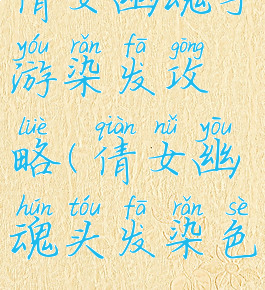 倩女幽魂手
yóu rǎn fā gōng
游染发攻
lüè qiàn nǚ yōu
略(倩女幽
hún tóu fā rǎn sè
魂头发染色